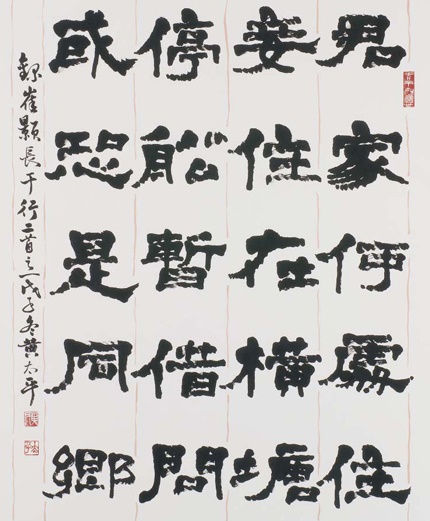 君家何處住
妾住在橫塘
停船暫借問
或恐是同鄉
錄崔顥長干行二首之一戊子冬黃太平